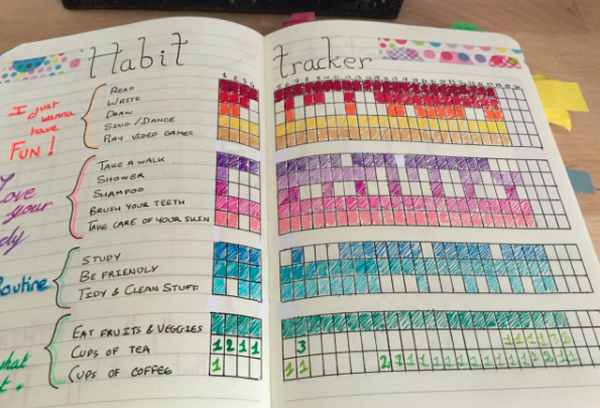 Habit tracker
I just
wanna
have
FUN!
READ
WRITE
DRAW
SING/DANCE
PLAY VIDEO GAMES
love
your
TAKE A WALK
SHOWER
SHAMPOO
BRUSH YOUR TEETH
TAKE CARE OF YOUR SKIN
Routine
STUDY
BE FRIENDLY
TIDY & CLEAN STUFF
EAT FRUITS & VEGGIES
CUPS OF TEA 1 2 1 1 3
CUPS OF COFFEE 1 1 1